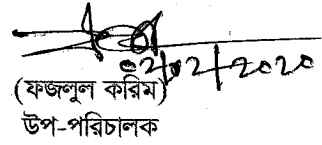 ০২/০২/২০২০
(ফজলুল করিম)
উপ-পরিচালক